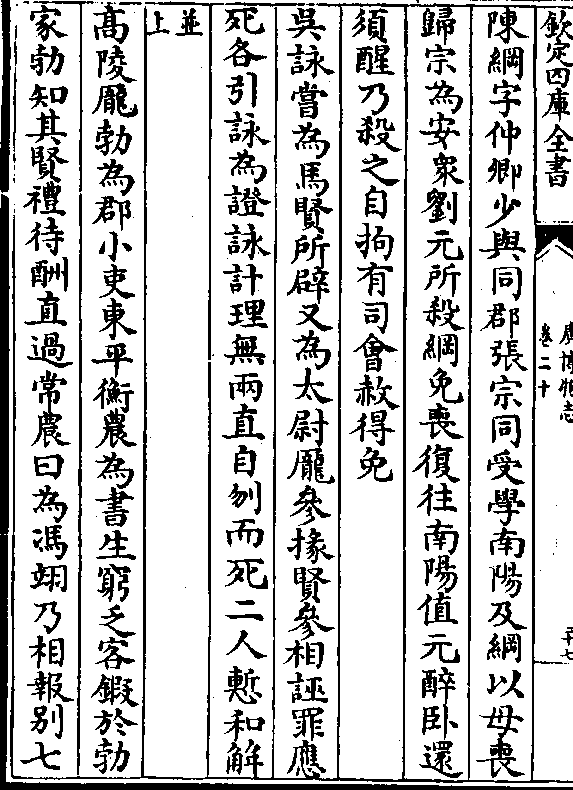 欽定四庫全書
廣博物志
卷二十
二十七
陳綱字仲卿少與同郡張宗同受學南陽及綱以母喪
歸宗為安衆劉元所殺綱免喪復往南陽值元醉卧還
須醒乃殺之自拘有司會赦得免
吳詠嘗為馬賢所辟又為太尉龎參掾賢參相誣罪應
死各引詠為證詠計理無兩直自刎而死二人慙和解
並上
高陵龎勃為郡小吏東平衡農為書生窮乏客鍜於勃
家勃知其賢禮待酬直過常農曰為馮翊乃相報别七